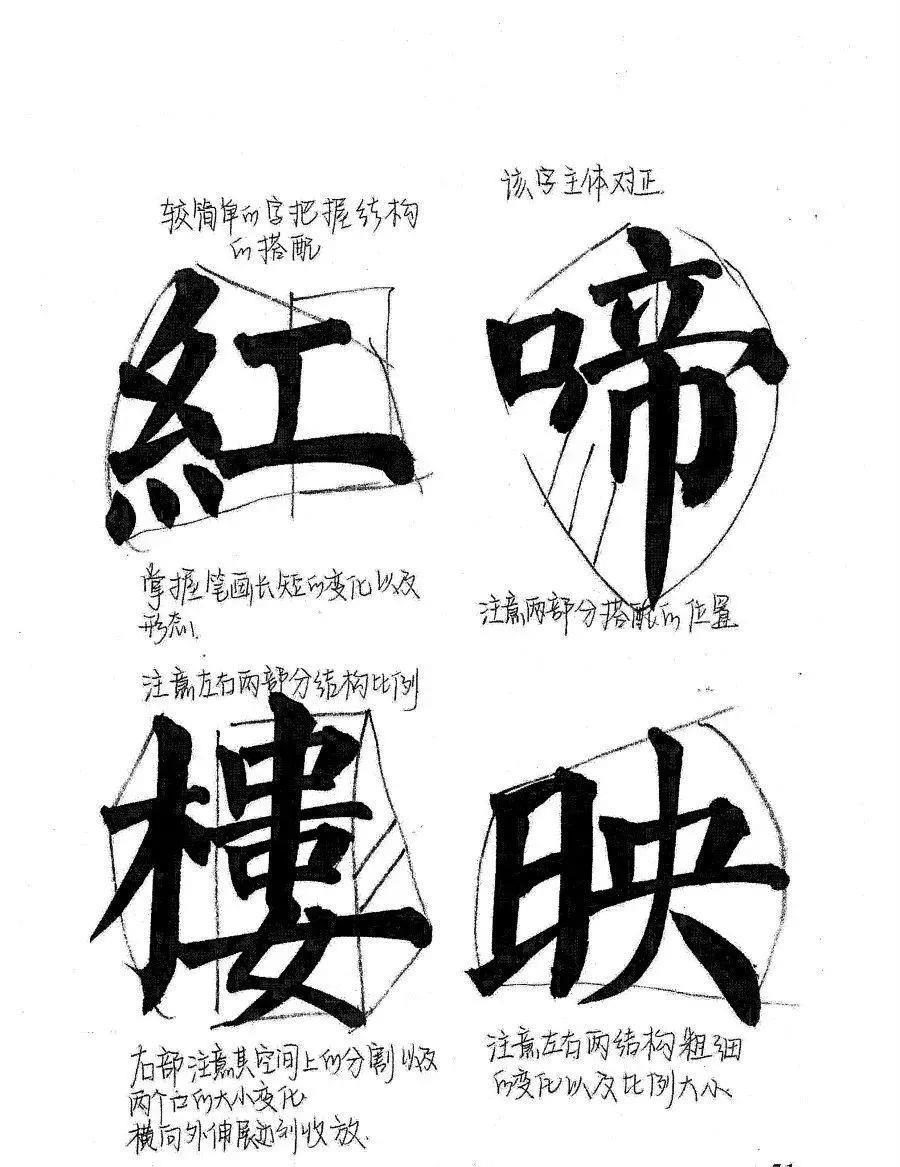 较简单的字把握结构
的搭配
紅
掌握笔画长短的变化以及
形态.
该字主体对正
啼
注意两部分搭配的位置
注意左右两部分结构比例
樓
右部注意其空间上的分割以及
两个口的大小变化
横向外伸展达到收放.
映
注意左右两结构粗细
的变化以及比例大小.